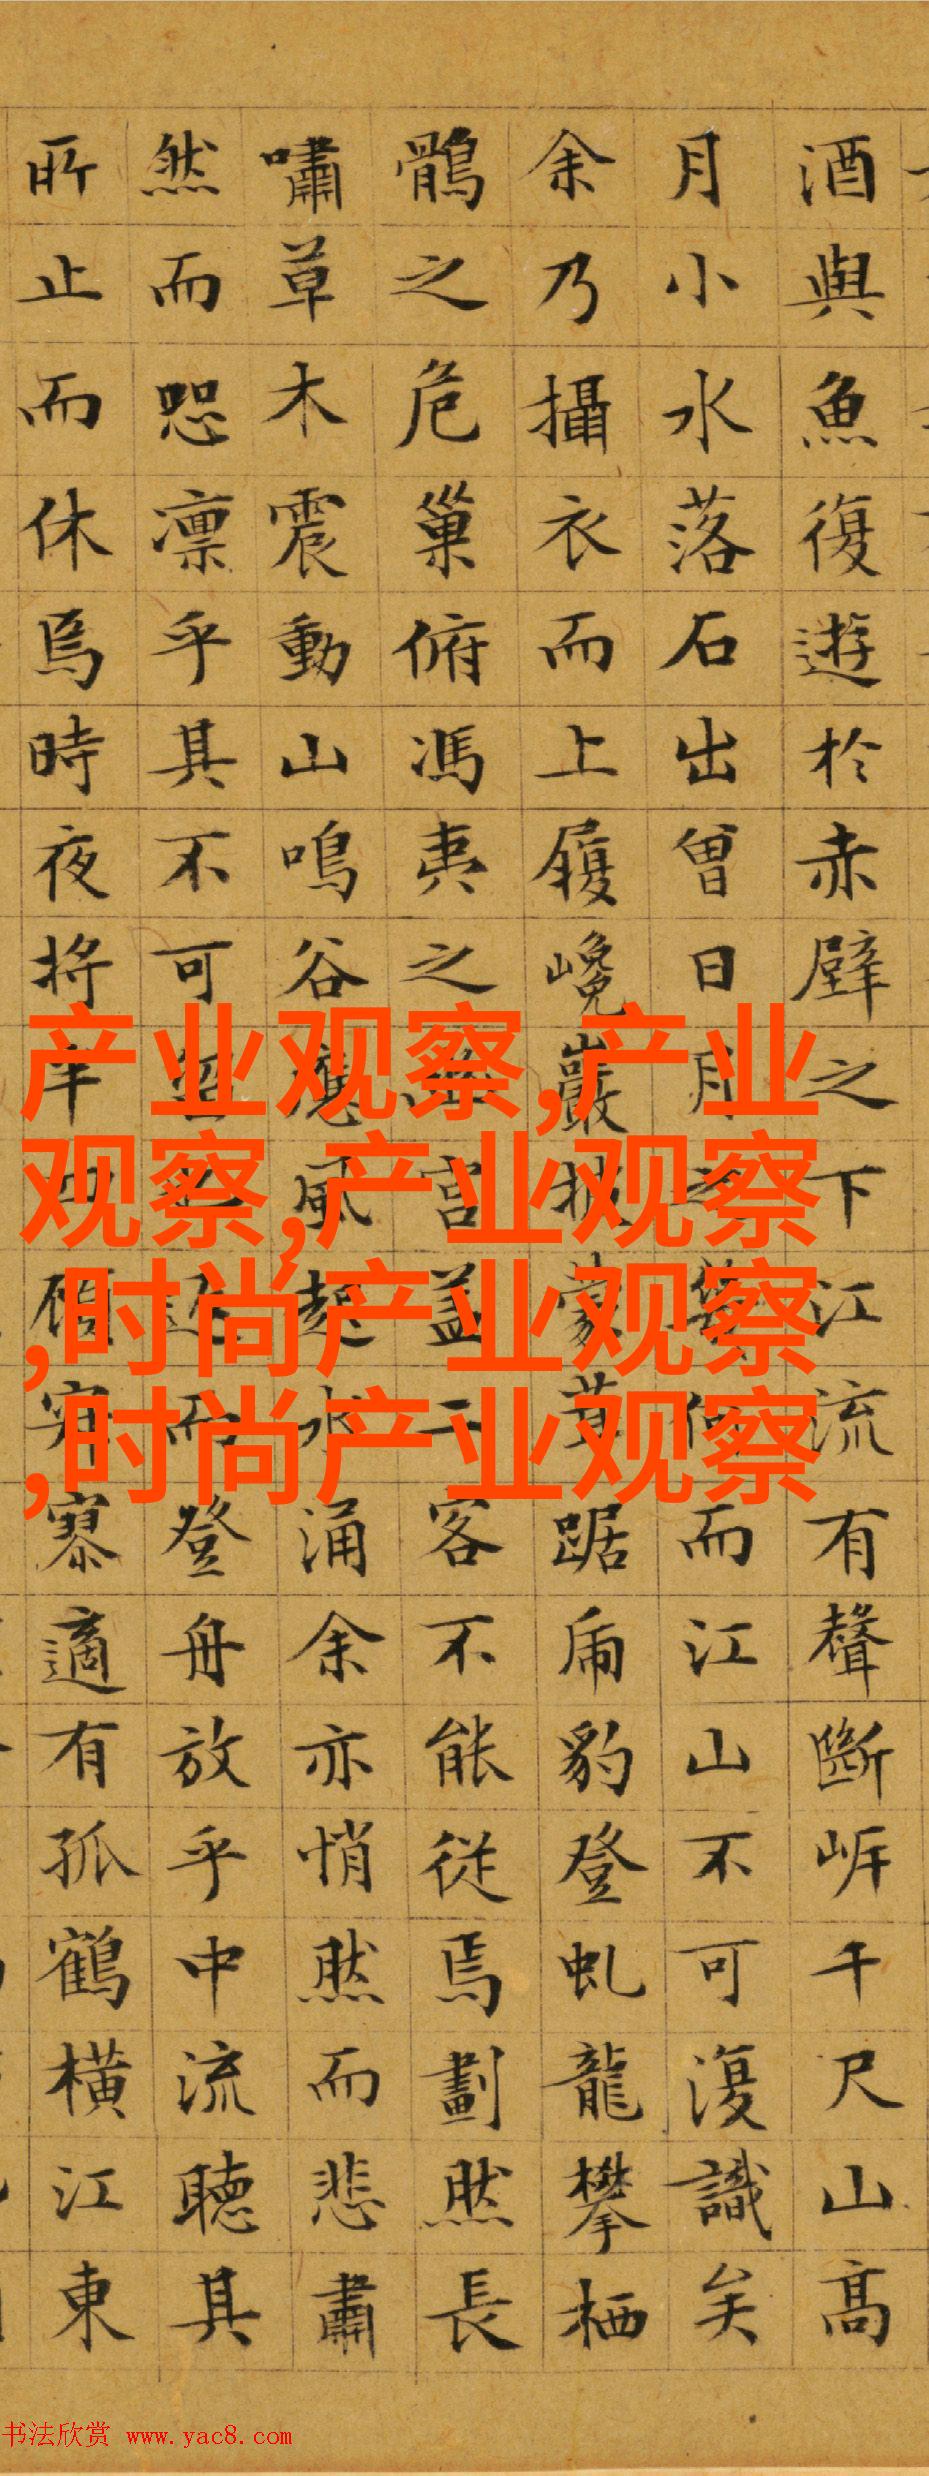 酒與魚復遊於赤壁之下江流有聲斷岸千尺山高
月小水落石出曾日月之幾何而江山不可復識矣
余乃攝衣而上履巉巖披蒙茸踞虎豹登虬龍攀栖
鶻之危巢俯馮夷之幽宮蓋二客不能從焉劃然長
嘯草木震動山鳴谷應風起水涌余亦悄然而悲肅
然而恐凛乎其不可留也返而登舟放乎中流聽其
所止而休焉時夜將半四顧寂寥適有孤鶴橫江東
产业观察,产业
观察,产业观察
,时尚产业观察
,时尚产业观察
书法欣赏 www.yac8.com